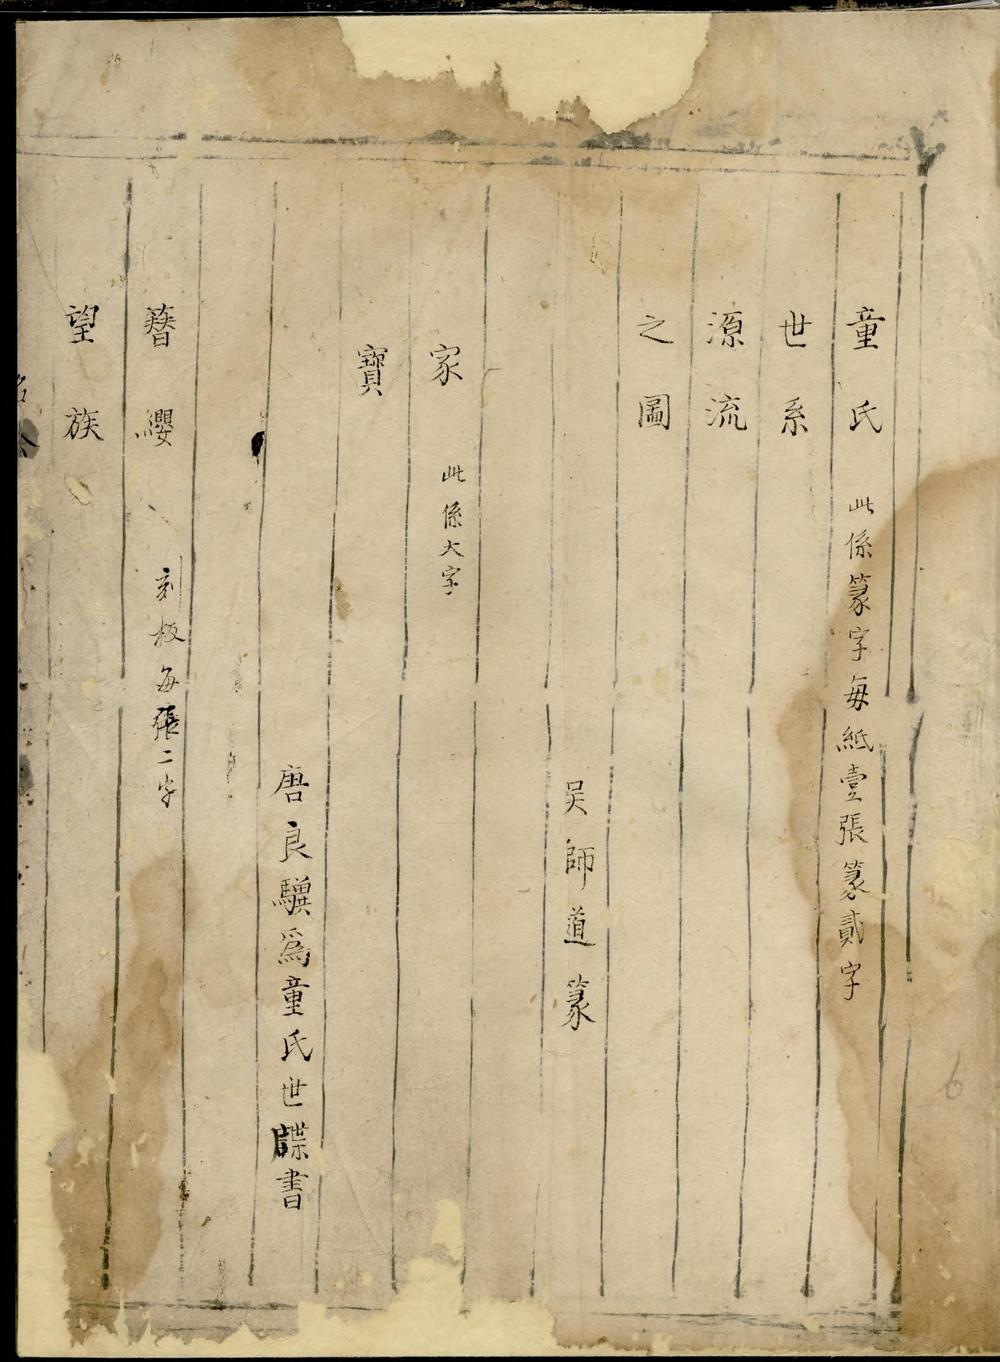 童氏 此係篆字每紙壹張篆貳字
世系
源流
之圖
吴師道篆
家 此係大字
寶
唐良驥爲童氏世牒書
簪纓 刻板每張二字
望族